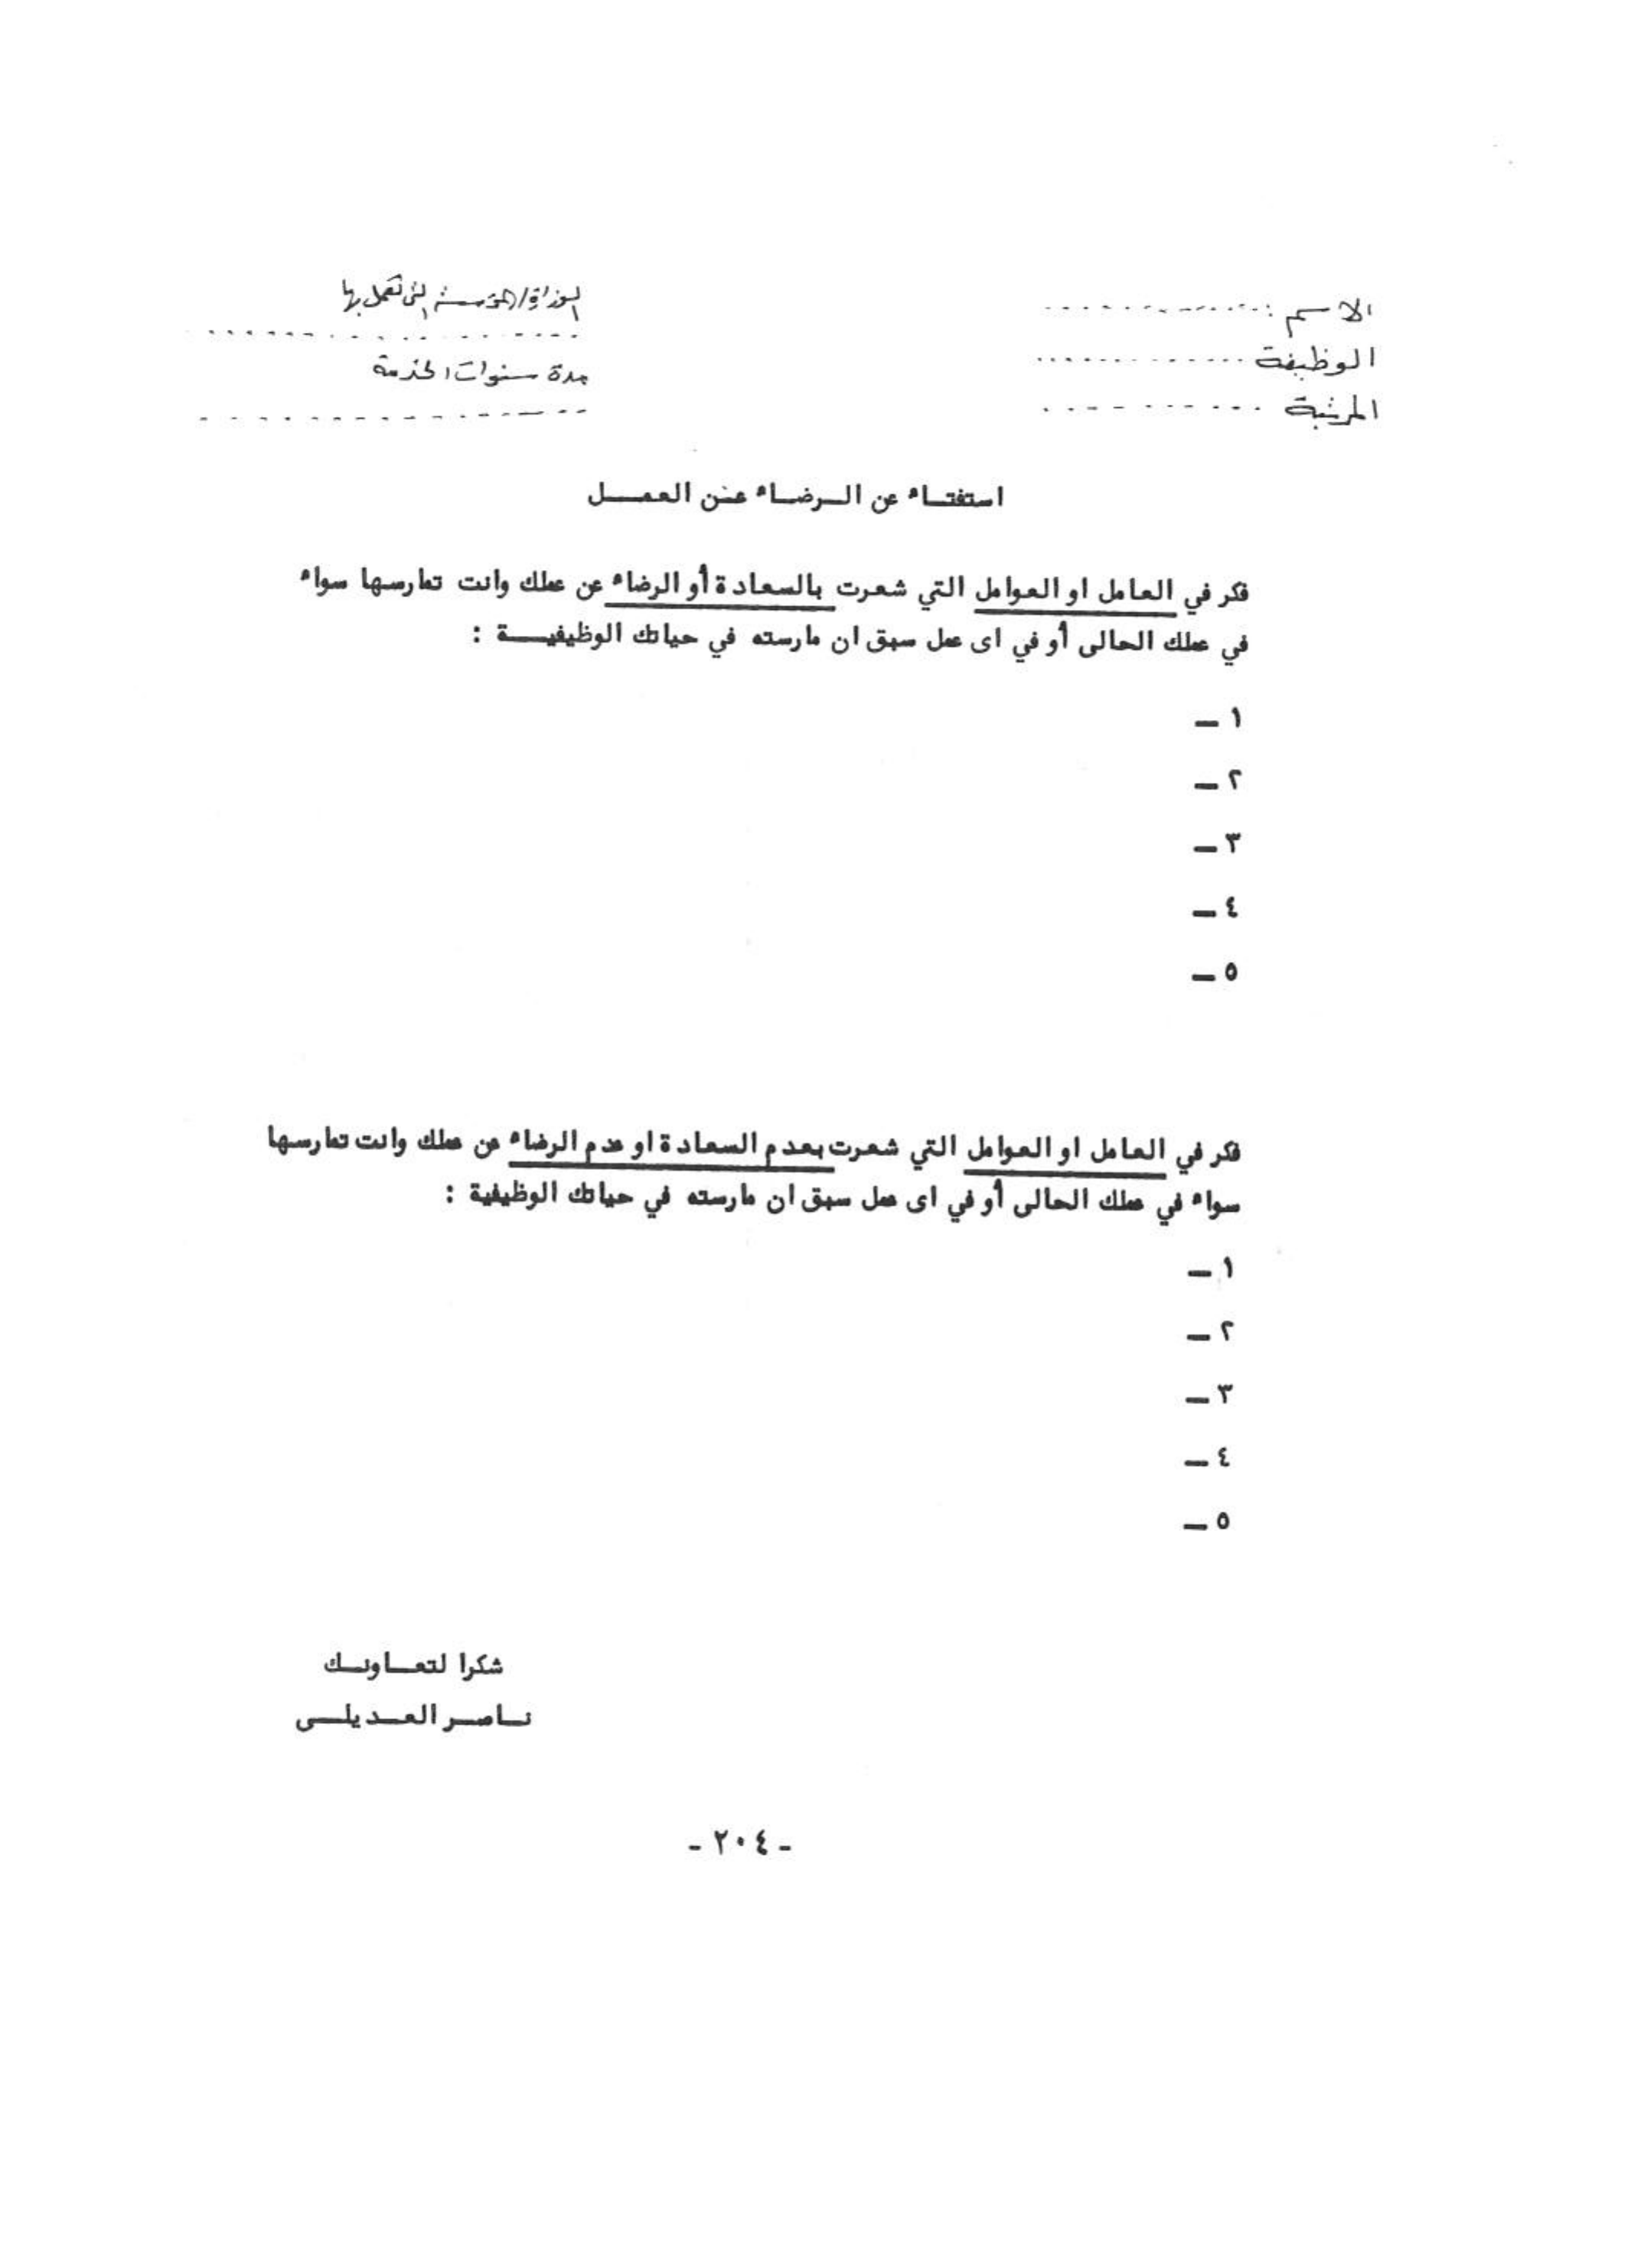 الاسم : ............
الوظيفة ............
المرتبة ............
الوزارة/المؤسسة التي تعمل بها
............
مدة سنوات الخدمة
............
استفتاء عن الرضاء عن العمل
فكر في العامل او العوامل التي شعرت بالسعادة أو الرضاء عن عملك وانت تمارسها سواء
في عملك الحالى أو في اى عمل سبق ان مارسته في حياتك الوظيفية :
١ –
٢ –
٣ –
٤ –
٥ –
فكر في العامل او العوامل التي شعرت بعدم السعادة او عدم الرضاء عن عملك وانت تمارسها
سواء في عملك الحالى أو في اى عمل سبق ان مارسته في حياتك الوظيفية :
١ –
٢ –
٣ –
٤ –
٥ –
شكرا لتعاونك
ناصر العديلى
- ٢٠٤ -